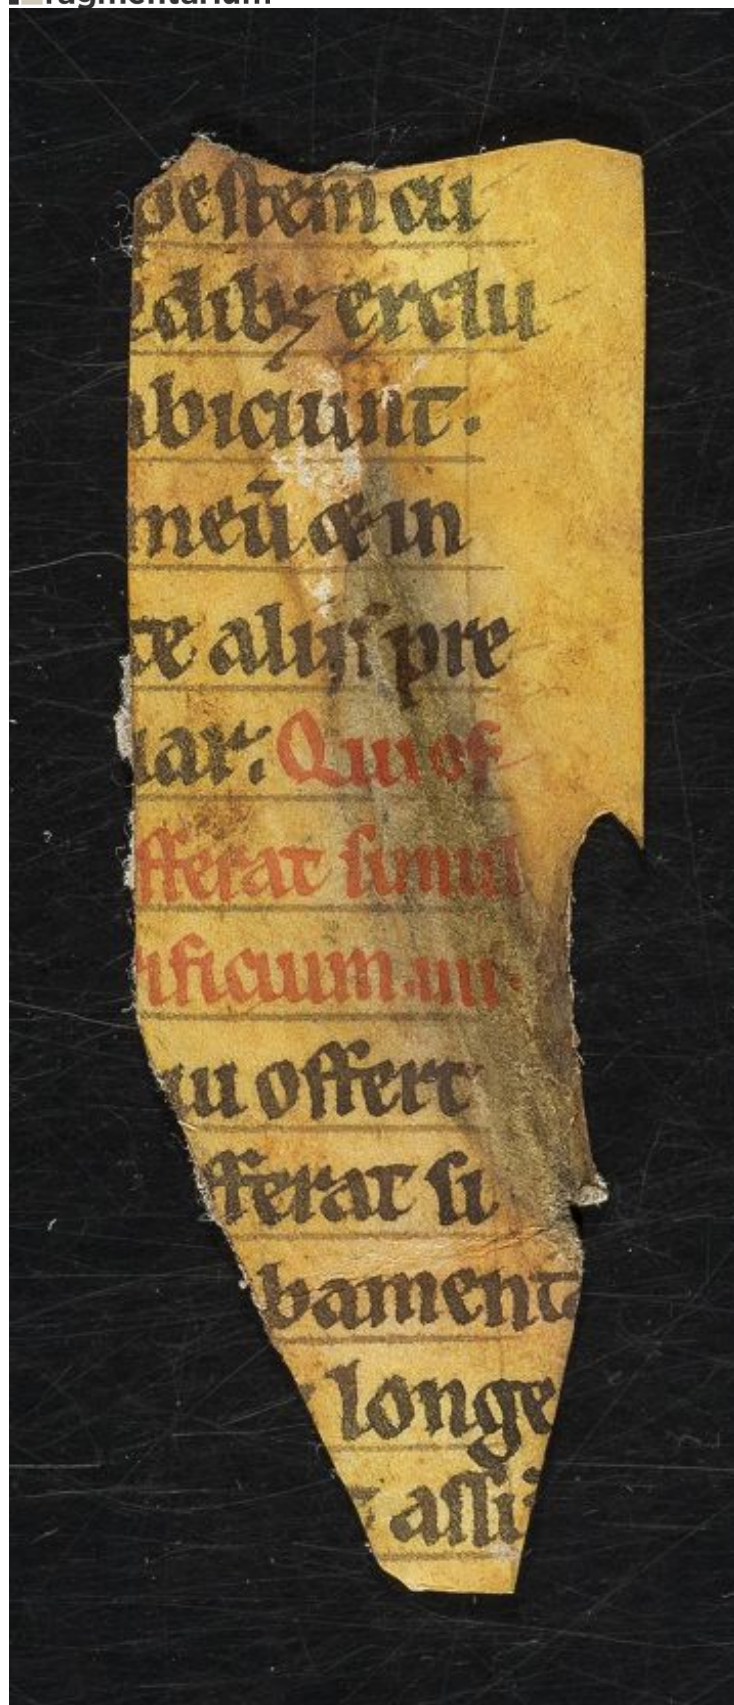 ragmentarium
pestem cu
dibꝫ exclu
abiciunt.
meū & in
te alijs pre
iar. Qui of
fferat simul
rificium.iiii.
ui offert
fferat si
bament
longe
assi